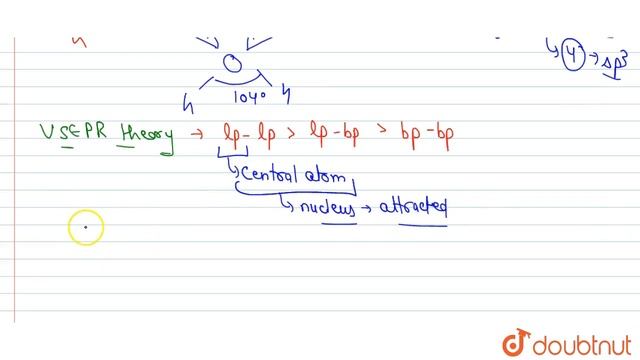 H
↳ 4 → sp³
O
H 104° H
VSEPR theory → lp-lp > lp-bp > bp-bp
↳ central atom
↳ nucleus → attracted
doubtnut